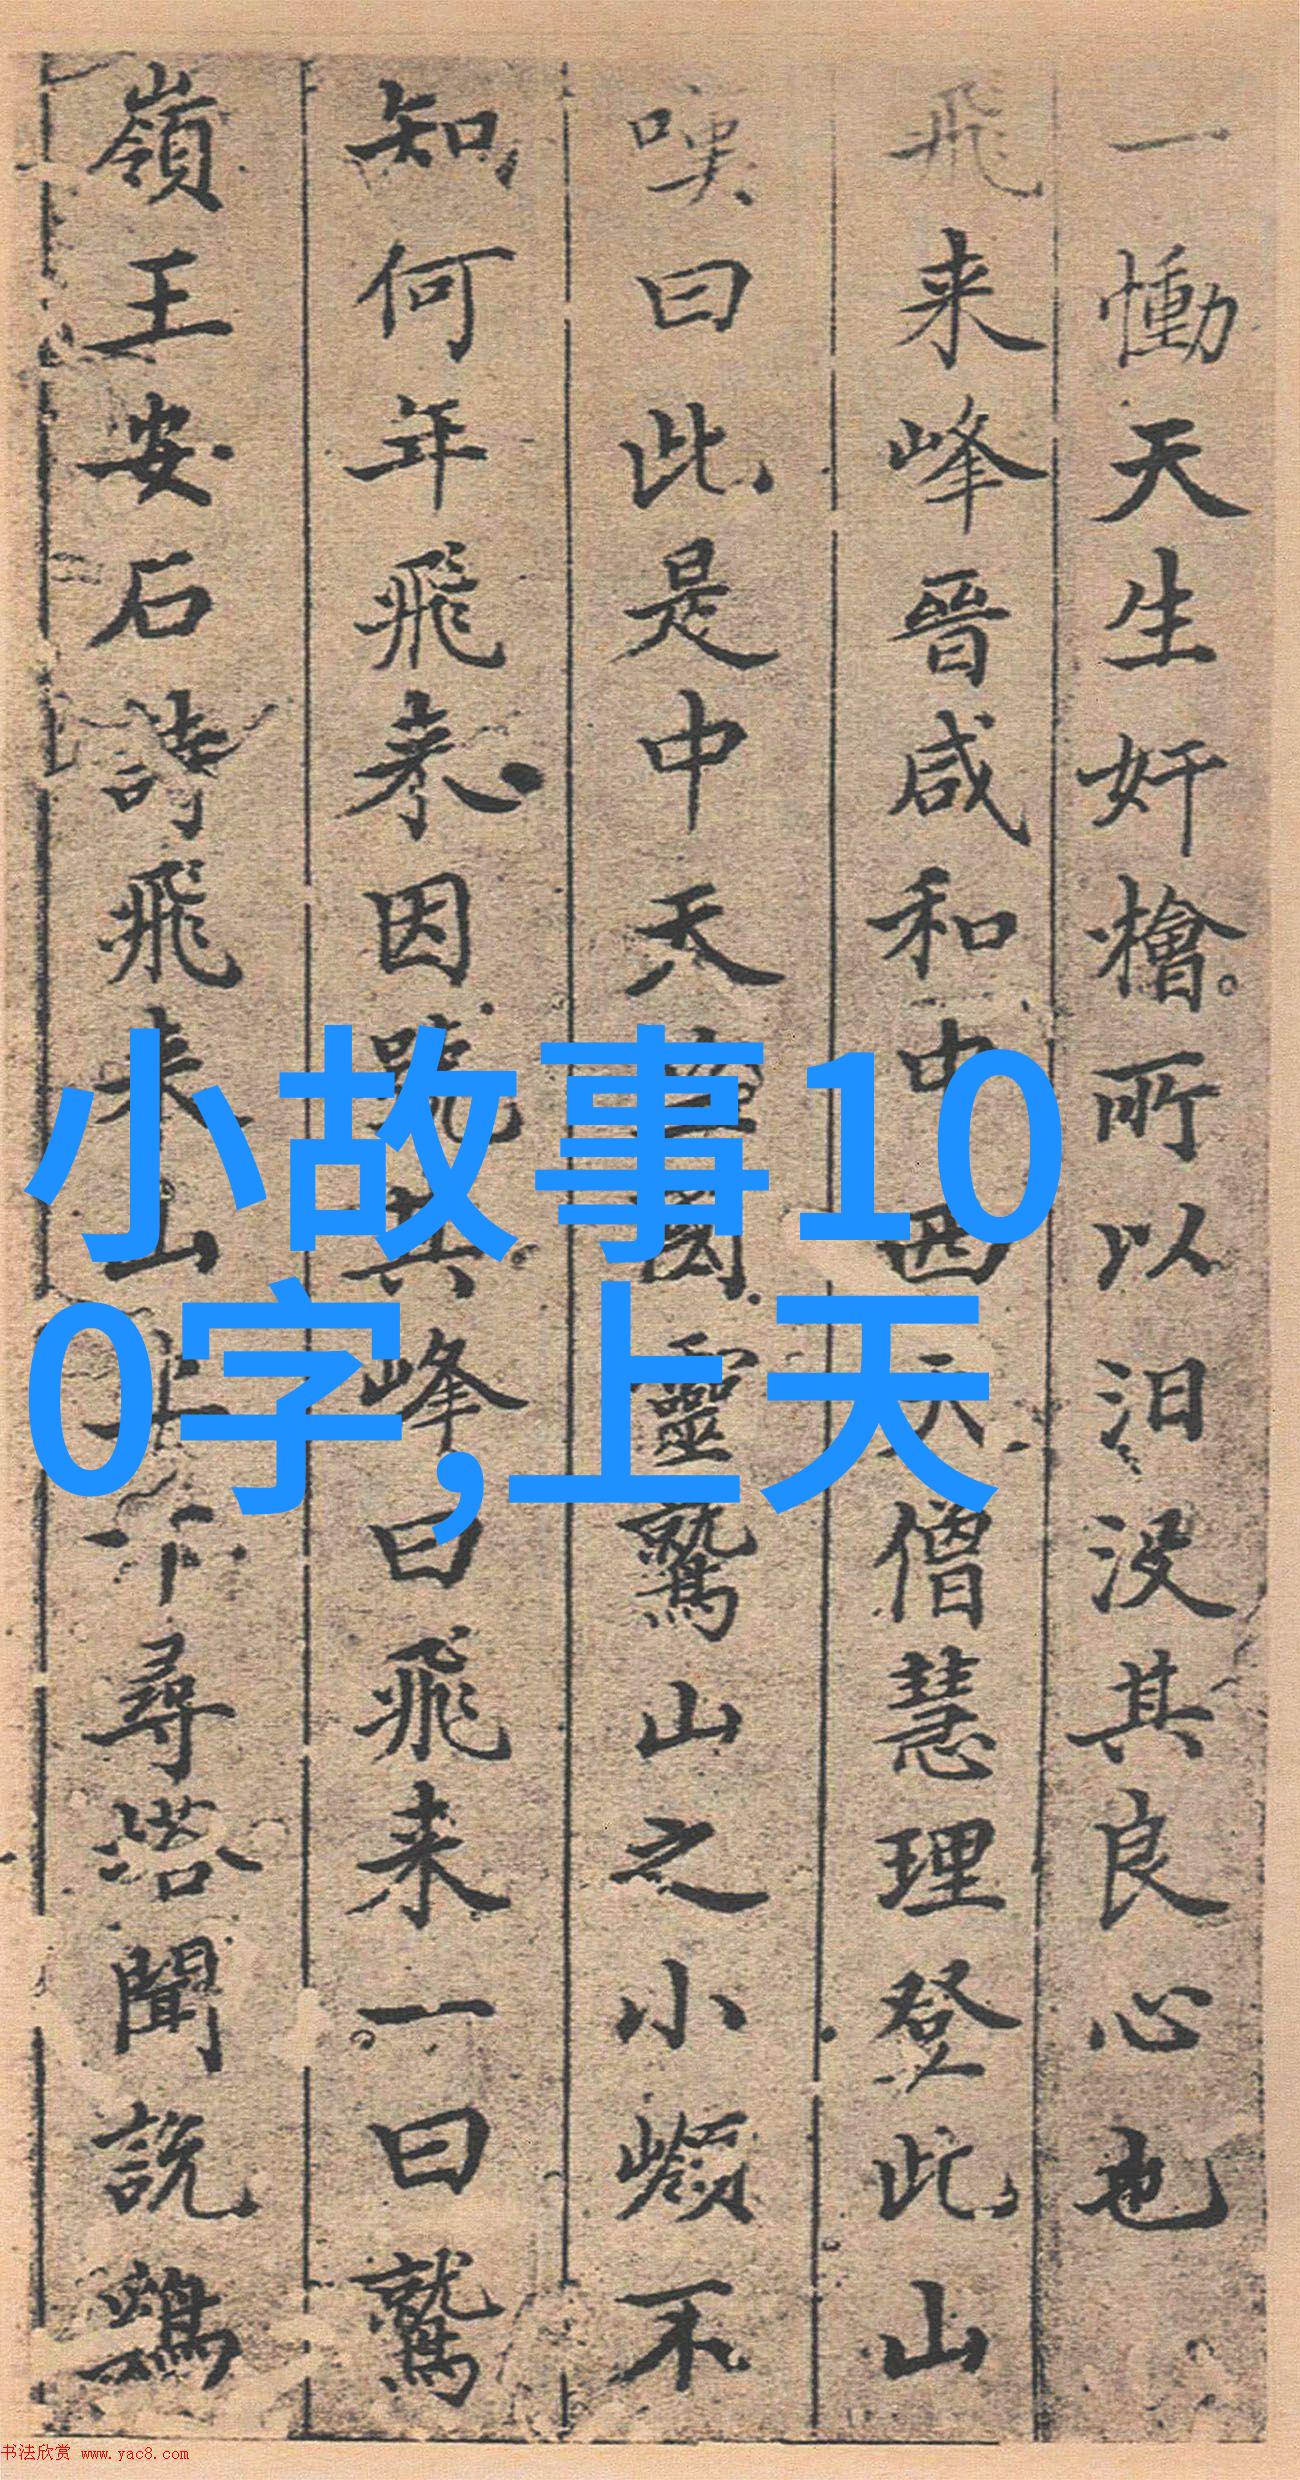 一慟天生奸檜所以汨没其良心也
飛来峰晉咸和中西天僧慧理登此山
嘆曰此是中天竺國靈鷲山之小嶺不
知何年飛来因號其峰曰飛来一曰鷲
嶺王安石詩飛来山上千尋塔聞説鷄
小故事10
0字,上天
书法欣赏 www.yac8.com